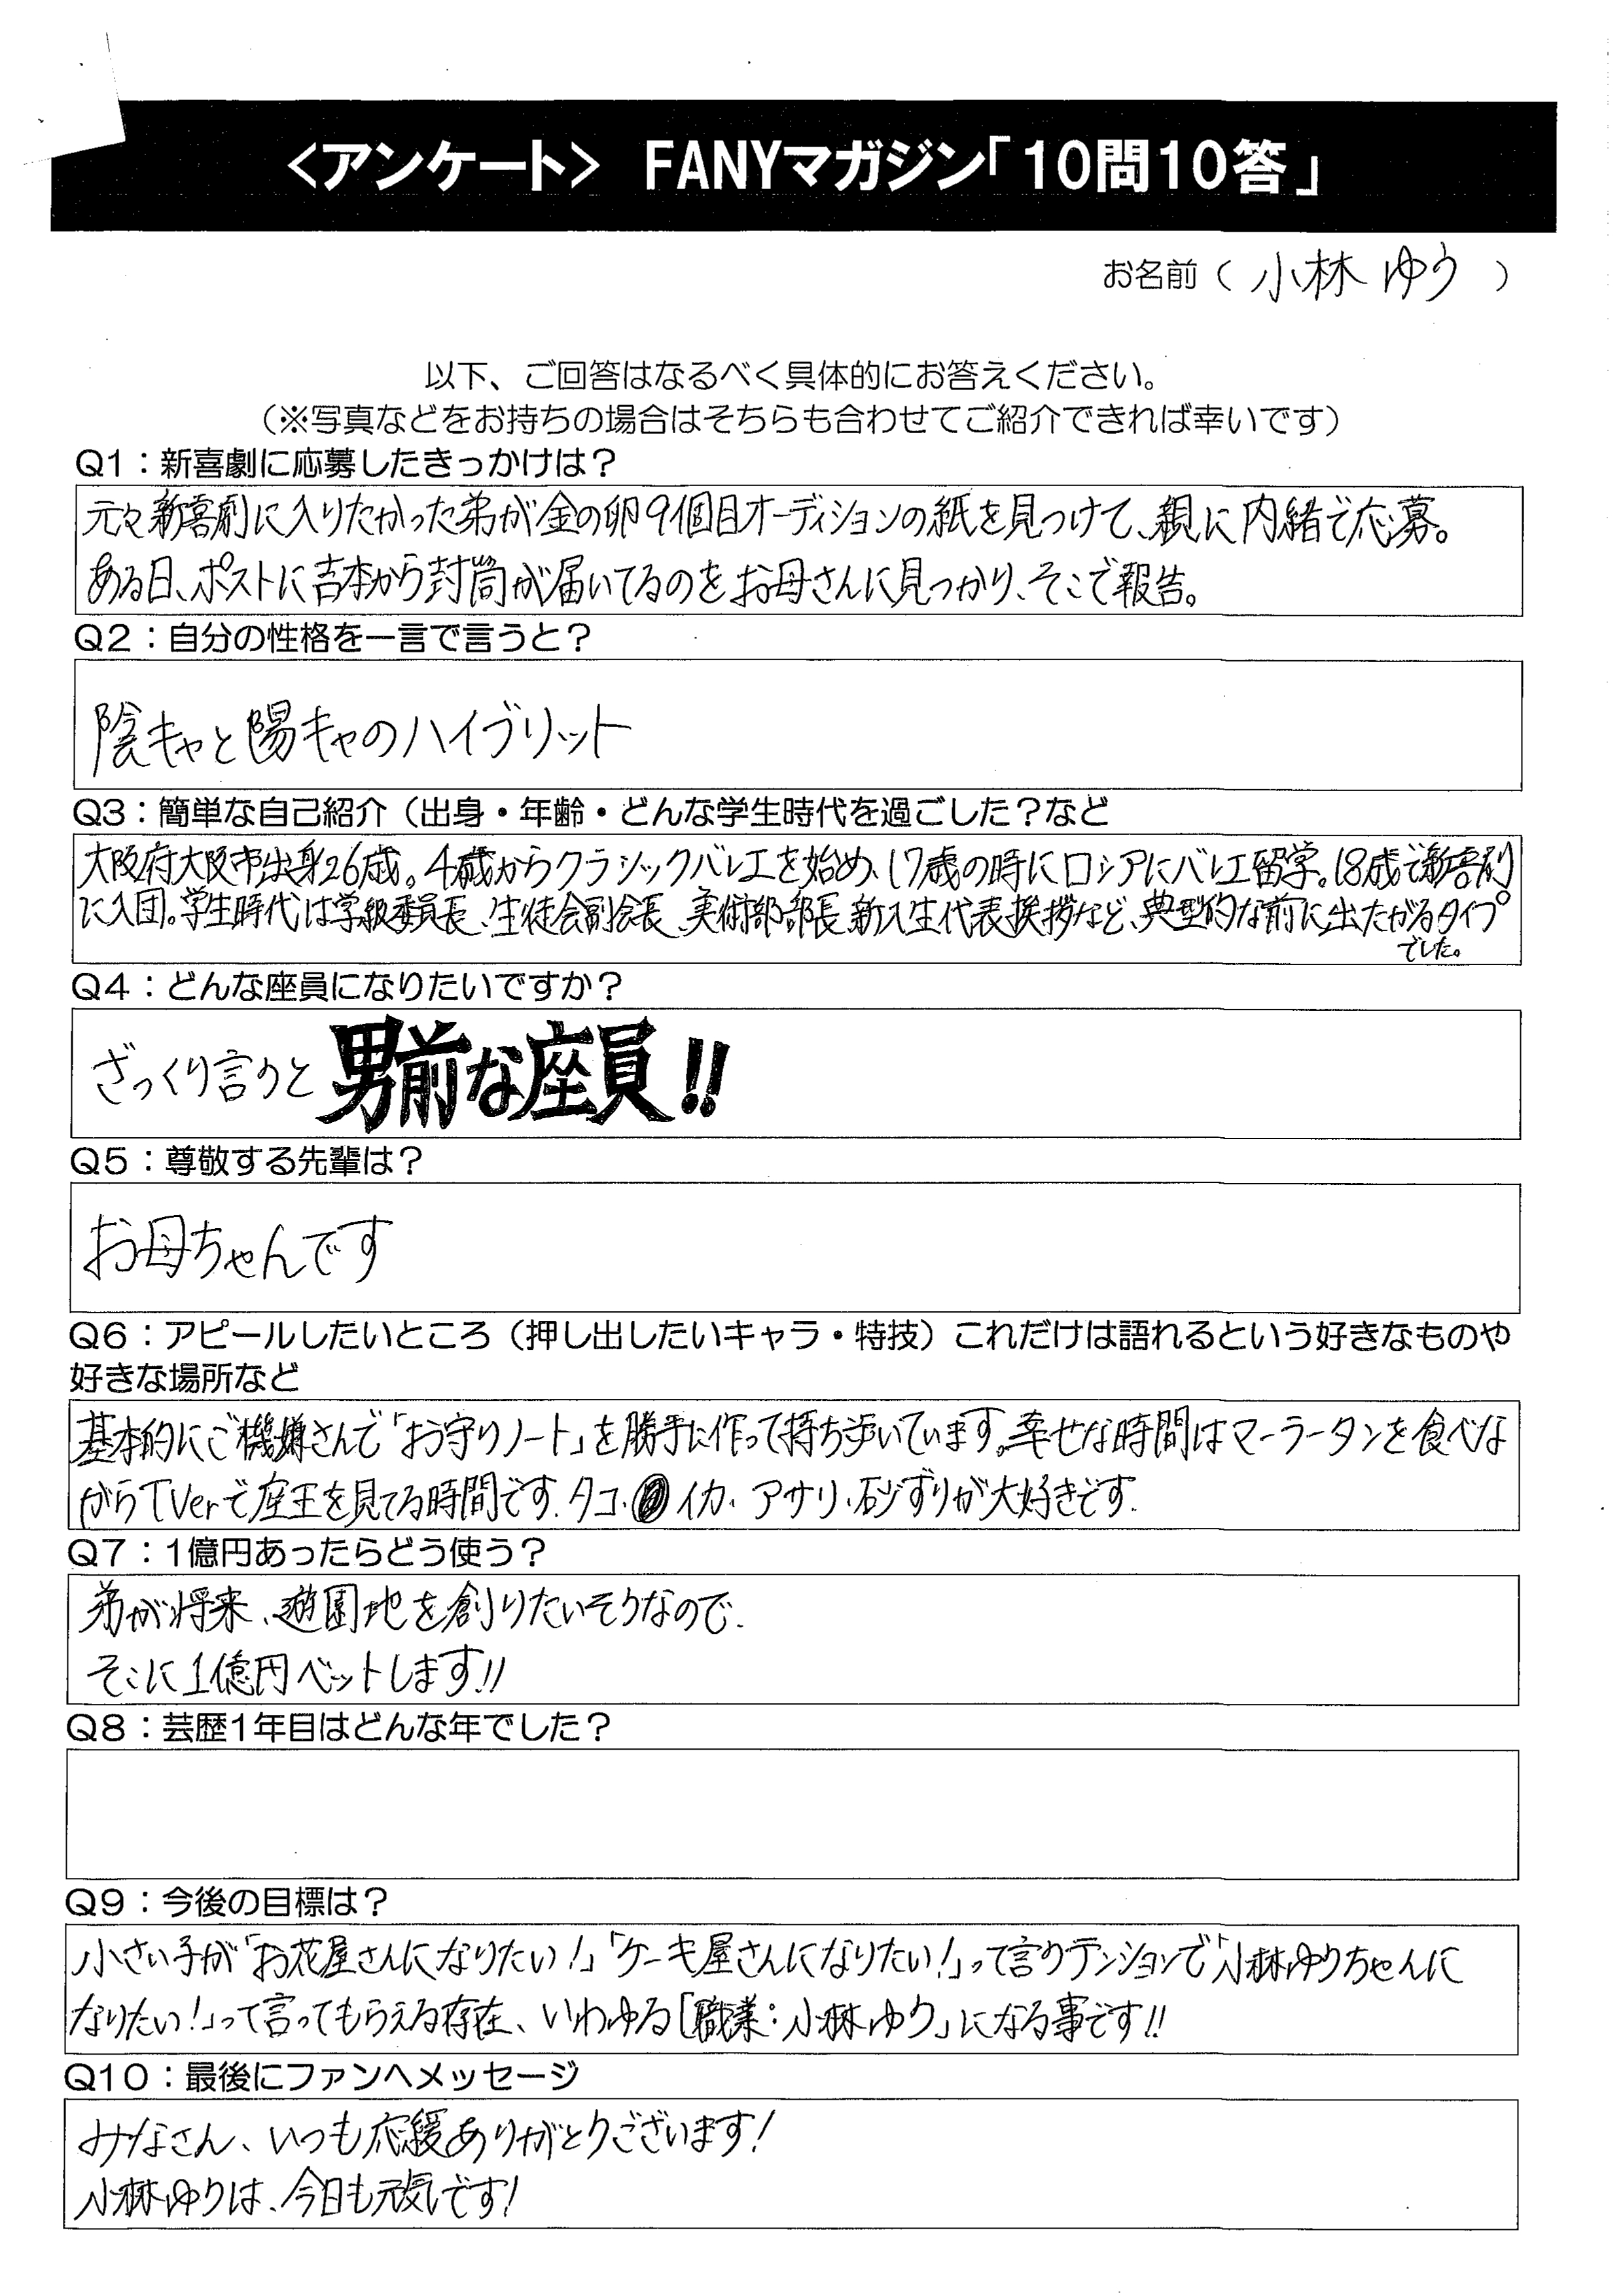 <アンケート> FANYマガジン「10問10答」
お名前（ 小林 ゆう ）
以下、ご回答はなるべく具体的にお答えください。
（※写真などをお持ちの場合はそちらも合わせてご紹介できれば幸いです）
Q1：新喜劇に応募したきっかけは？
元々新喜劇に入りたかった弟が金の卵9個目オーディションの紙を見つけて、親に内緒で応募。
ある日、ポストに吉本から封筒が届いてるのをお母さんに見つかり、そこで報告。
Q2：自分の性格を一言で言うと？
陰キャと陽キャのハイブリット
Q3：簡単な自己紹介（出身・年齢・どんな学生時代を過ごした？など
大阪府大阪市出身26歳。4歳からクラシックバレエを始め、17歳の時にロシアにバレエ留学。18歳で新喜劇
に入団。学生時代は学級委員長、生徒会副会長、美術部部長、新入生代表挨拶など、典型的な前に出たがるタイプ
でした。
Q4：どんな座員になりたいですか？
ざっくり言うと 男前な座員!!
Q5：尊敬する先輩は？
お母ちゃんです
Q6：アピールしたいところ（押し出したいキャラ・特技）これだけは語れるという好きなものや
好きな場所など
基本的にご機嫌さんで「お守りノート」を勝手に作って持ち歩いています。幸せな時間はマーラータンを食べな
がらTVerで座王を見てる時間です。タコ、イカ、アサリ、砂ずりが大好きです。
Q7：1億円あったらどう使う？
弟が将来、遊園地を創りたいそうなので、
そこに1億円ベットします!!
Q8：芸歴1年目はどんな年でした？
Q9：今後の目標は？
小さい子が「お花屋さんになりたい！」「ケーキ屋さんになりたい！」って言うテンションで「小林ゆうちゃんに
なりたい！」って言ってもらえる存在、いわゆる「職業：小林ゆう」になる事です!!
Q10：最後にファンへメッセージ
みなさん、いつも応援ありがとうございます！
小林ゆうは、今日も元気です！